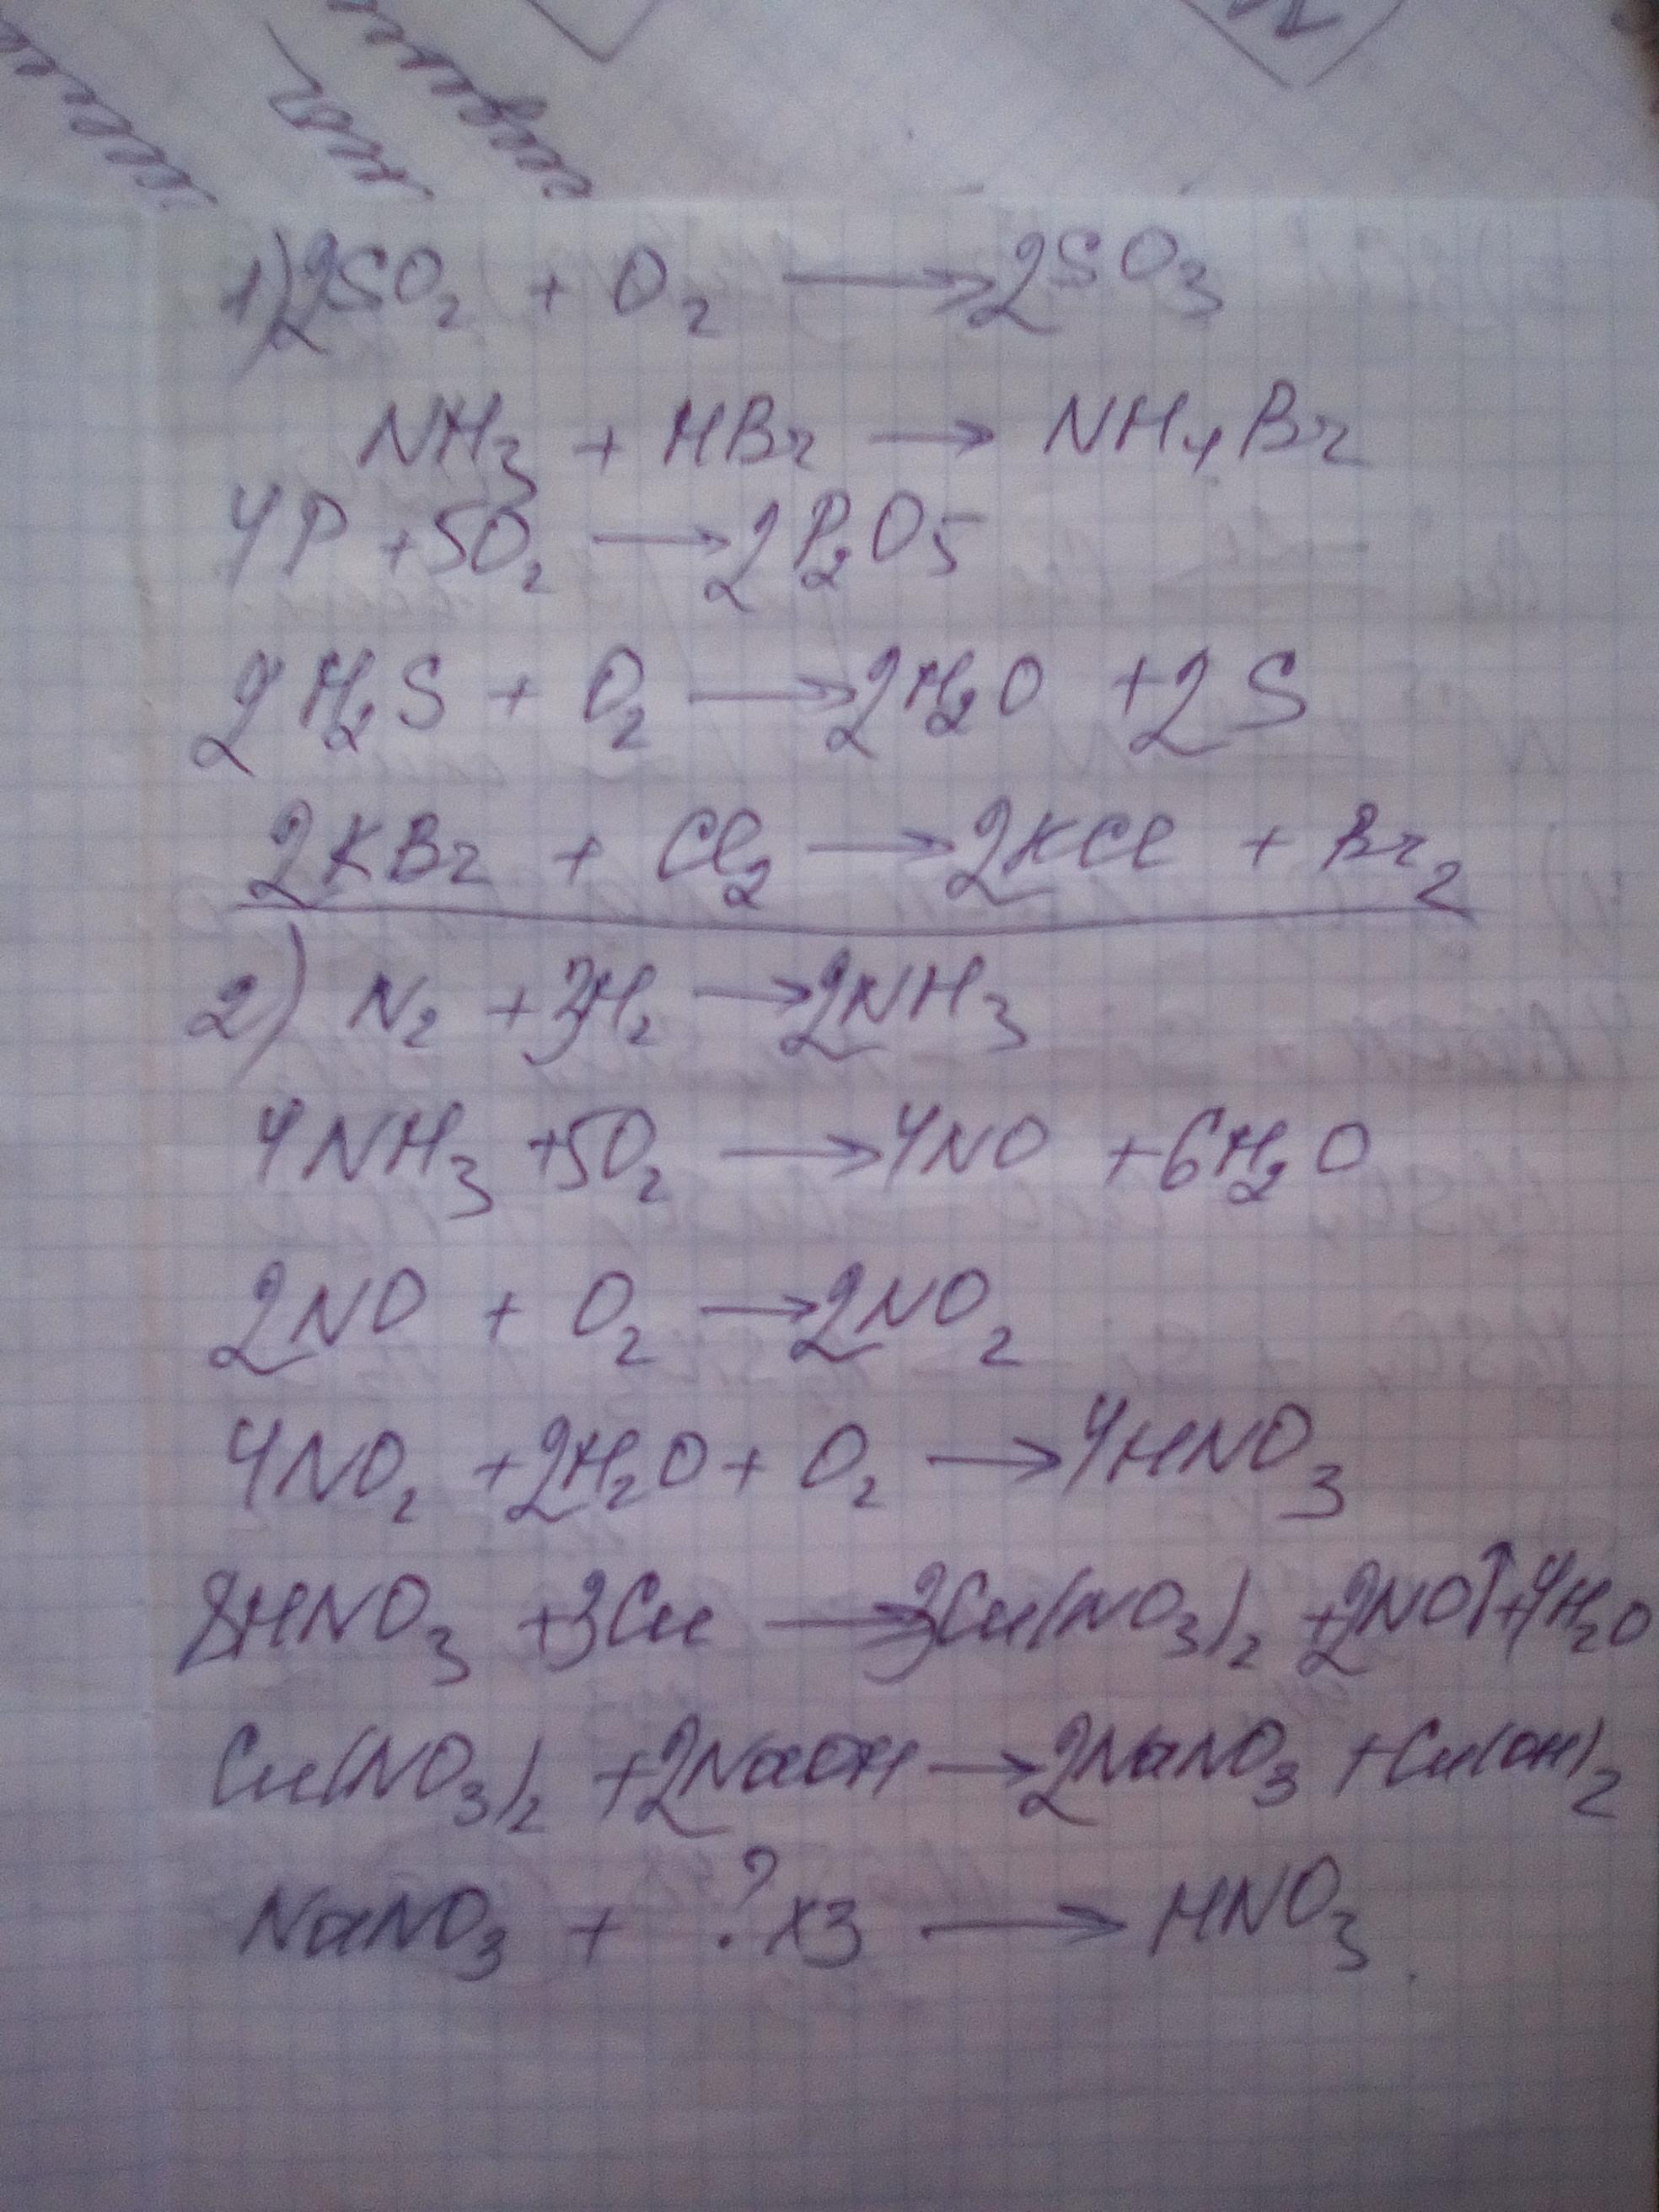 1) 2SO₂ + O₂ → 2SO₃
NH₃ + HBr → NH₄Br
4P + 5O₂ → 2P₂O₅
2H₂S + O₂ → 2H₂O + 2S
2KBr + Cl₂ → 2KCl + Br₂
2) N₂ + 3H₂ → 2NH₃
4NH₃ + 5O₂ → 4NO + 6H₂O
2NO + O₂ → 2NO₂
4NO₂ + 2H₂O + O₂ → 4HNO₃
8HNO₃ + 3Cu → 3Cu(NO₃)₂ + 2NO↑ + 4H₂O
Cu(NO₃)₂ + 2NaOH → 2NaNO₃ + Cu(OH)₂
NaNO₃ + ? хз → HNO₃